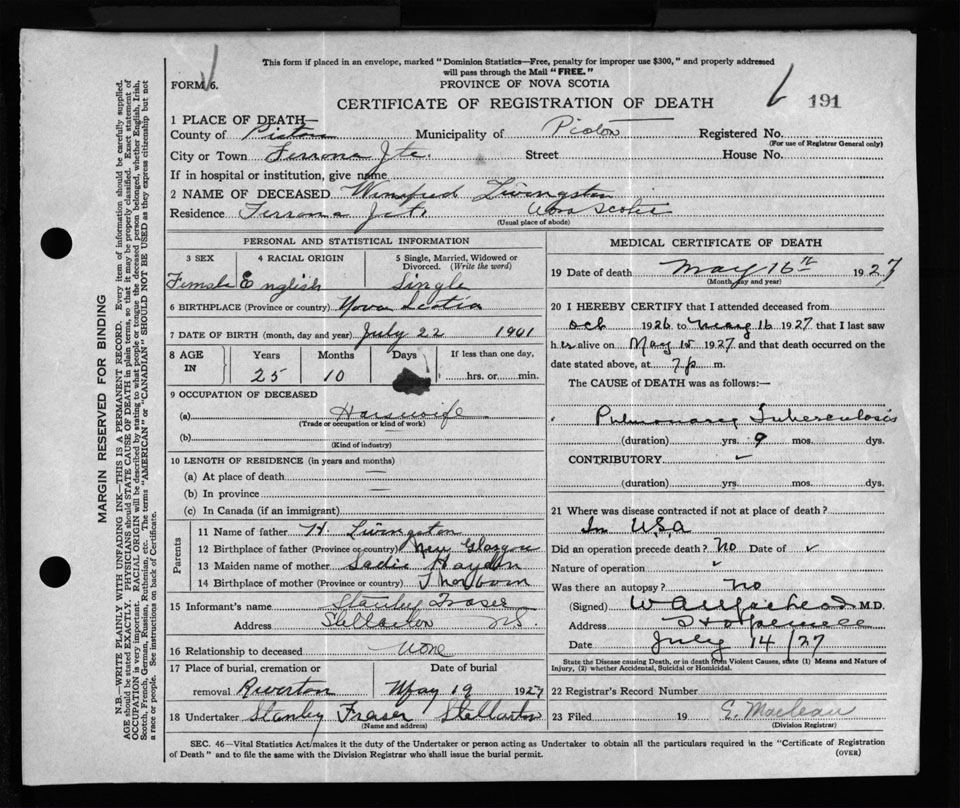 This form if placed in an envelope, marked "Dominion Statistics—Free, penalty for improper use $300," and properly addressed
will pass through the Mail "FREE."
FORM 6.
PROVINCE OF NOVA SCOTIA
CERTIFICATE OF REGISTRATION OF DEATH
191
1 PLACE OF DEATH—
County of Pictou Municipality of Pictou Registered No.
(For use of Registrar General only)
City or Town Ferrona Jtc. Street House No.
If in hospital or institution, give name
2 NAME OF DECEASED Winifred Livingston
Residence Ferrona Jct. Nova Scotia
(Usual place of abode)
PERSONAL AND STATISTICAL INFORMATION
3 SEX 4 RACIAL ORIGIN 5 Single, Married, Widowed or Divorced. (Write the word)
Female English Single
6 BIRTHPLACE (Province or country) Nova Scotia
7 DATE OF BIRTH (month, day and year) July 22 1901
8 AGE IN Years Months Days If less than one day,
25 10 hrs. or min.
9 OCCUPATION OF DECEASED
(a) Housewife
(Trade or occupation or kind of work)
(b)
(Kind of industry)
10 LENGTH OF RESIDENCE (in years and months)
(a) At place of death —
(b) In province —
(c) In Canada (if an immigrant)
Parents
11 Name of father H. Livingston
12 Birthplace of father (Province or country) New Glasgow
13 Maiden name of mother Sadie Hayden
14 Birthplace of mother (Province or country) Thorburn
15 Informant's name Stanley Fraser
Address Stellarton NS.
16 Relationship to deceased None
17 Place of burial, cremation or Date of burial
removal Riverton May 19 1927
18 Undertaker Stanley Fraser Stellarton
(Name and address)
MEDICAL CERTIFICATE OF DEATH
19 Date of death May 16th 1927
(Month, day and year)
20 I HEREBY CERTIFY that I attended deceased from
Oct 1926 to May 16 1927 that I last saw
her alive on May 15 1927 and that death occurred on the
date stated above, at 7 p m.
The CAUSE of DEATH was as follows:—
Pulmonary Tuberculosis
(duration) yrs. 9 mos. dys.
CONTRIBUTORY
(duration) yrs. mos. dys.
21 Where was disease contracted if not at place of death?
In U.S.A
Did an operation precede death? No Date of
Nature of operation
Was there an autopsy? No
(Signed) M.D.
Address
Date July 14/27
State the Disease causing Death, or in death from Violent Causes, state (1) Means and Nature of
Injury, (2) whether Accidental, Suicidal or Homicidal.
22 Registrar's Record Number
23 Filed 19 E. Maclean
(Division Registrar)
SEC. 46—Vital Statistics Act makes it the duty of the Undertaker or person acting as Undertaker to obtain all the particulars required in the "Certificate of Registration
of Death" and to file the same with the Division Registrar who shall issue the burial permit.
(OVER)
MARGIN RESERVED FOR BINDING
N.B.—WRITE PLAINLY WITH UNFADING INK—THIS IS A PERMANENT RECORD. Every item of information should be carefully supplied.
AGE should be stated EXACTLY. PHYSICIANS should STATE CAUSE OF DEATH in plain terms, so that it may be properly classified. Exact statement of
OCCUPATION is very important. RACIAL ORIGIN will be described by stating to what people or tongue the deceased person belonged, whether English, Irish,
Scotch, French, German, Russian, Ruthenian, etc. The terms "AMERICAN" or "CANADIAN" SHOULD NOT BE USED as they express citizenship but not
a race or people. See instructions on back of Certificate.